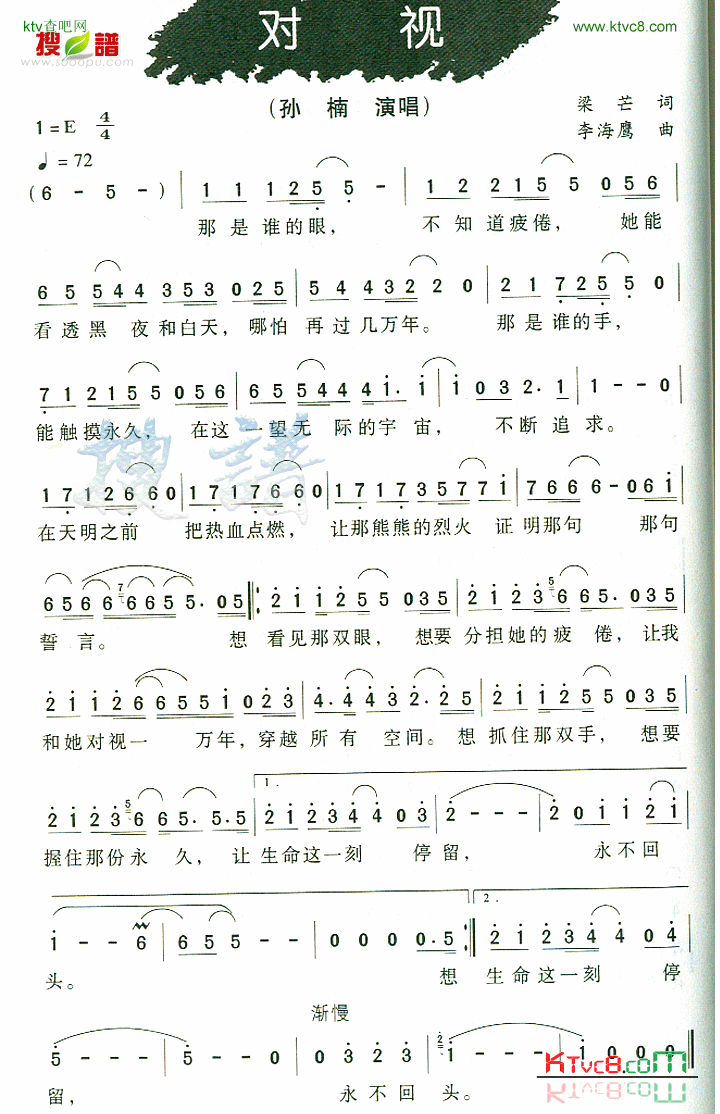 ktv查吧网
搜譜
www.sooopu.com
www.ktvc8.com
对 视
(孙 楠 演唱)
梁 芒 词
李海鹰 曲
1=E 4/4
♩=72
(6 - 5 -) 1 1 1 2 5 5 5 - 1 2 2 1 5 5 0 5 6
那 是 谁的眼, 不 知 道疲倦, 她能
6 5 5 4 4 3 5 3 0 2 5 5 4 4 3 2 2 0 2 1 7 2 5 5
看 透 黑 夜和白天, 哪怕 再 过 几万年。 那 是 谁的手,
7 1 2 1 5 5 0 5 6 6 5 5 4 4 4 1· 1 1 0 3 2· 1
能触摸永久, 在这 一望无 际的宇 宙, 不断 追 求。
1 7 1 2 6 6 0 1 7 1 7 6 6 0 1 7 1 7 3 5 7 7 1 7 6 6 6 - 0 6 1
在天明之前 把热血点燃, 让那熊熊的烈火 证明那句 那句
6 5 6 6 7 6 6 5 5· 0 5 2 1 1 2 5 5 0 3 5 2 1 2 3 5 6 6· 0 3 5
誓 言。 想 看见那双眼, 想要 分担她的疲 倦, 让我
2 1 1 2 6 6 5 5 1 0 2 3 4· 4 4 3 2· 2 5 2 1 1 2 5 5 0 3 5
和她对视一 万年, 穿越 所有 空间。想 抓住那双手, 想要
1.
2 1 2 3 5 6 6 5· 5 2 1 2 3 4 4 0 3 2 - - - 2 0 1 1 2 1
握住那份永 久, 让 生命这一刻 停 留, 永不回
2.
1 - - 6 6 5 5 - - 0 0 0 0·5 2 1 2 3 4 4 0 4
头。 想 生命这一刻 停
渐慢
5 - - - 5 - - 0 0 3 2 3 2 1 - - - 1 0 0 0
留, 永 不 回 头。
KTvc8.com